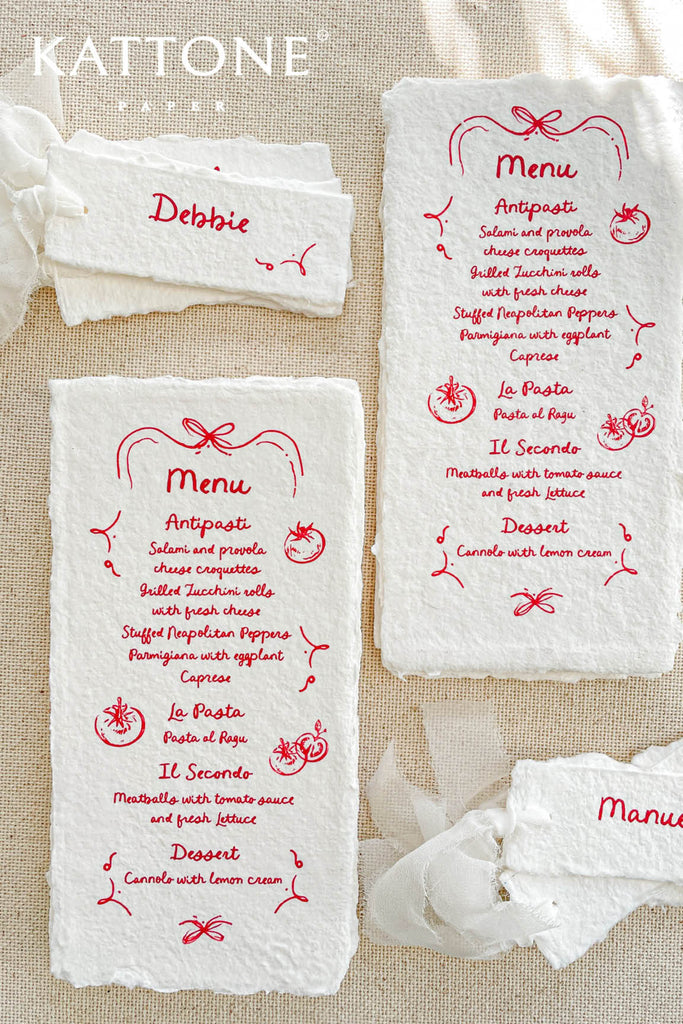 KATTONE
PAPER
Debbie
Menu
Antipasti
Salami and provola
cheese croquettes
Grilled Zucchini rolls
with fresh cheese
Stuffed Neapolitan Peppers
Parmigiana with eggplant
Caprese
La Pasta
Pasta al Ragu
Il Secondo
Meatballs with tomato sauce
and fresh Lettuce
Dessert
Cannolo with lemon cream
Menu
Antipasti
Salami and provola
cheese croquettes
Grilled Zucchini rolls
with fresh cheese
Stuffed Neapolitan Peppers
Parmigiana with eggplant
Caprese
La Pasta
Pasta al Ragu
Il Secondo
Meatballs with tomato sauce
and fresh Lettuce
Dessert
Cannolo with lemon cream
Manue